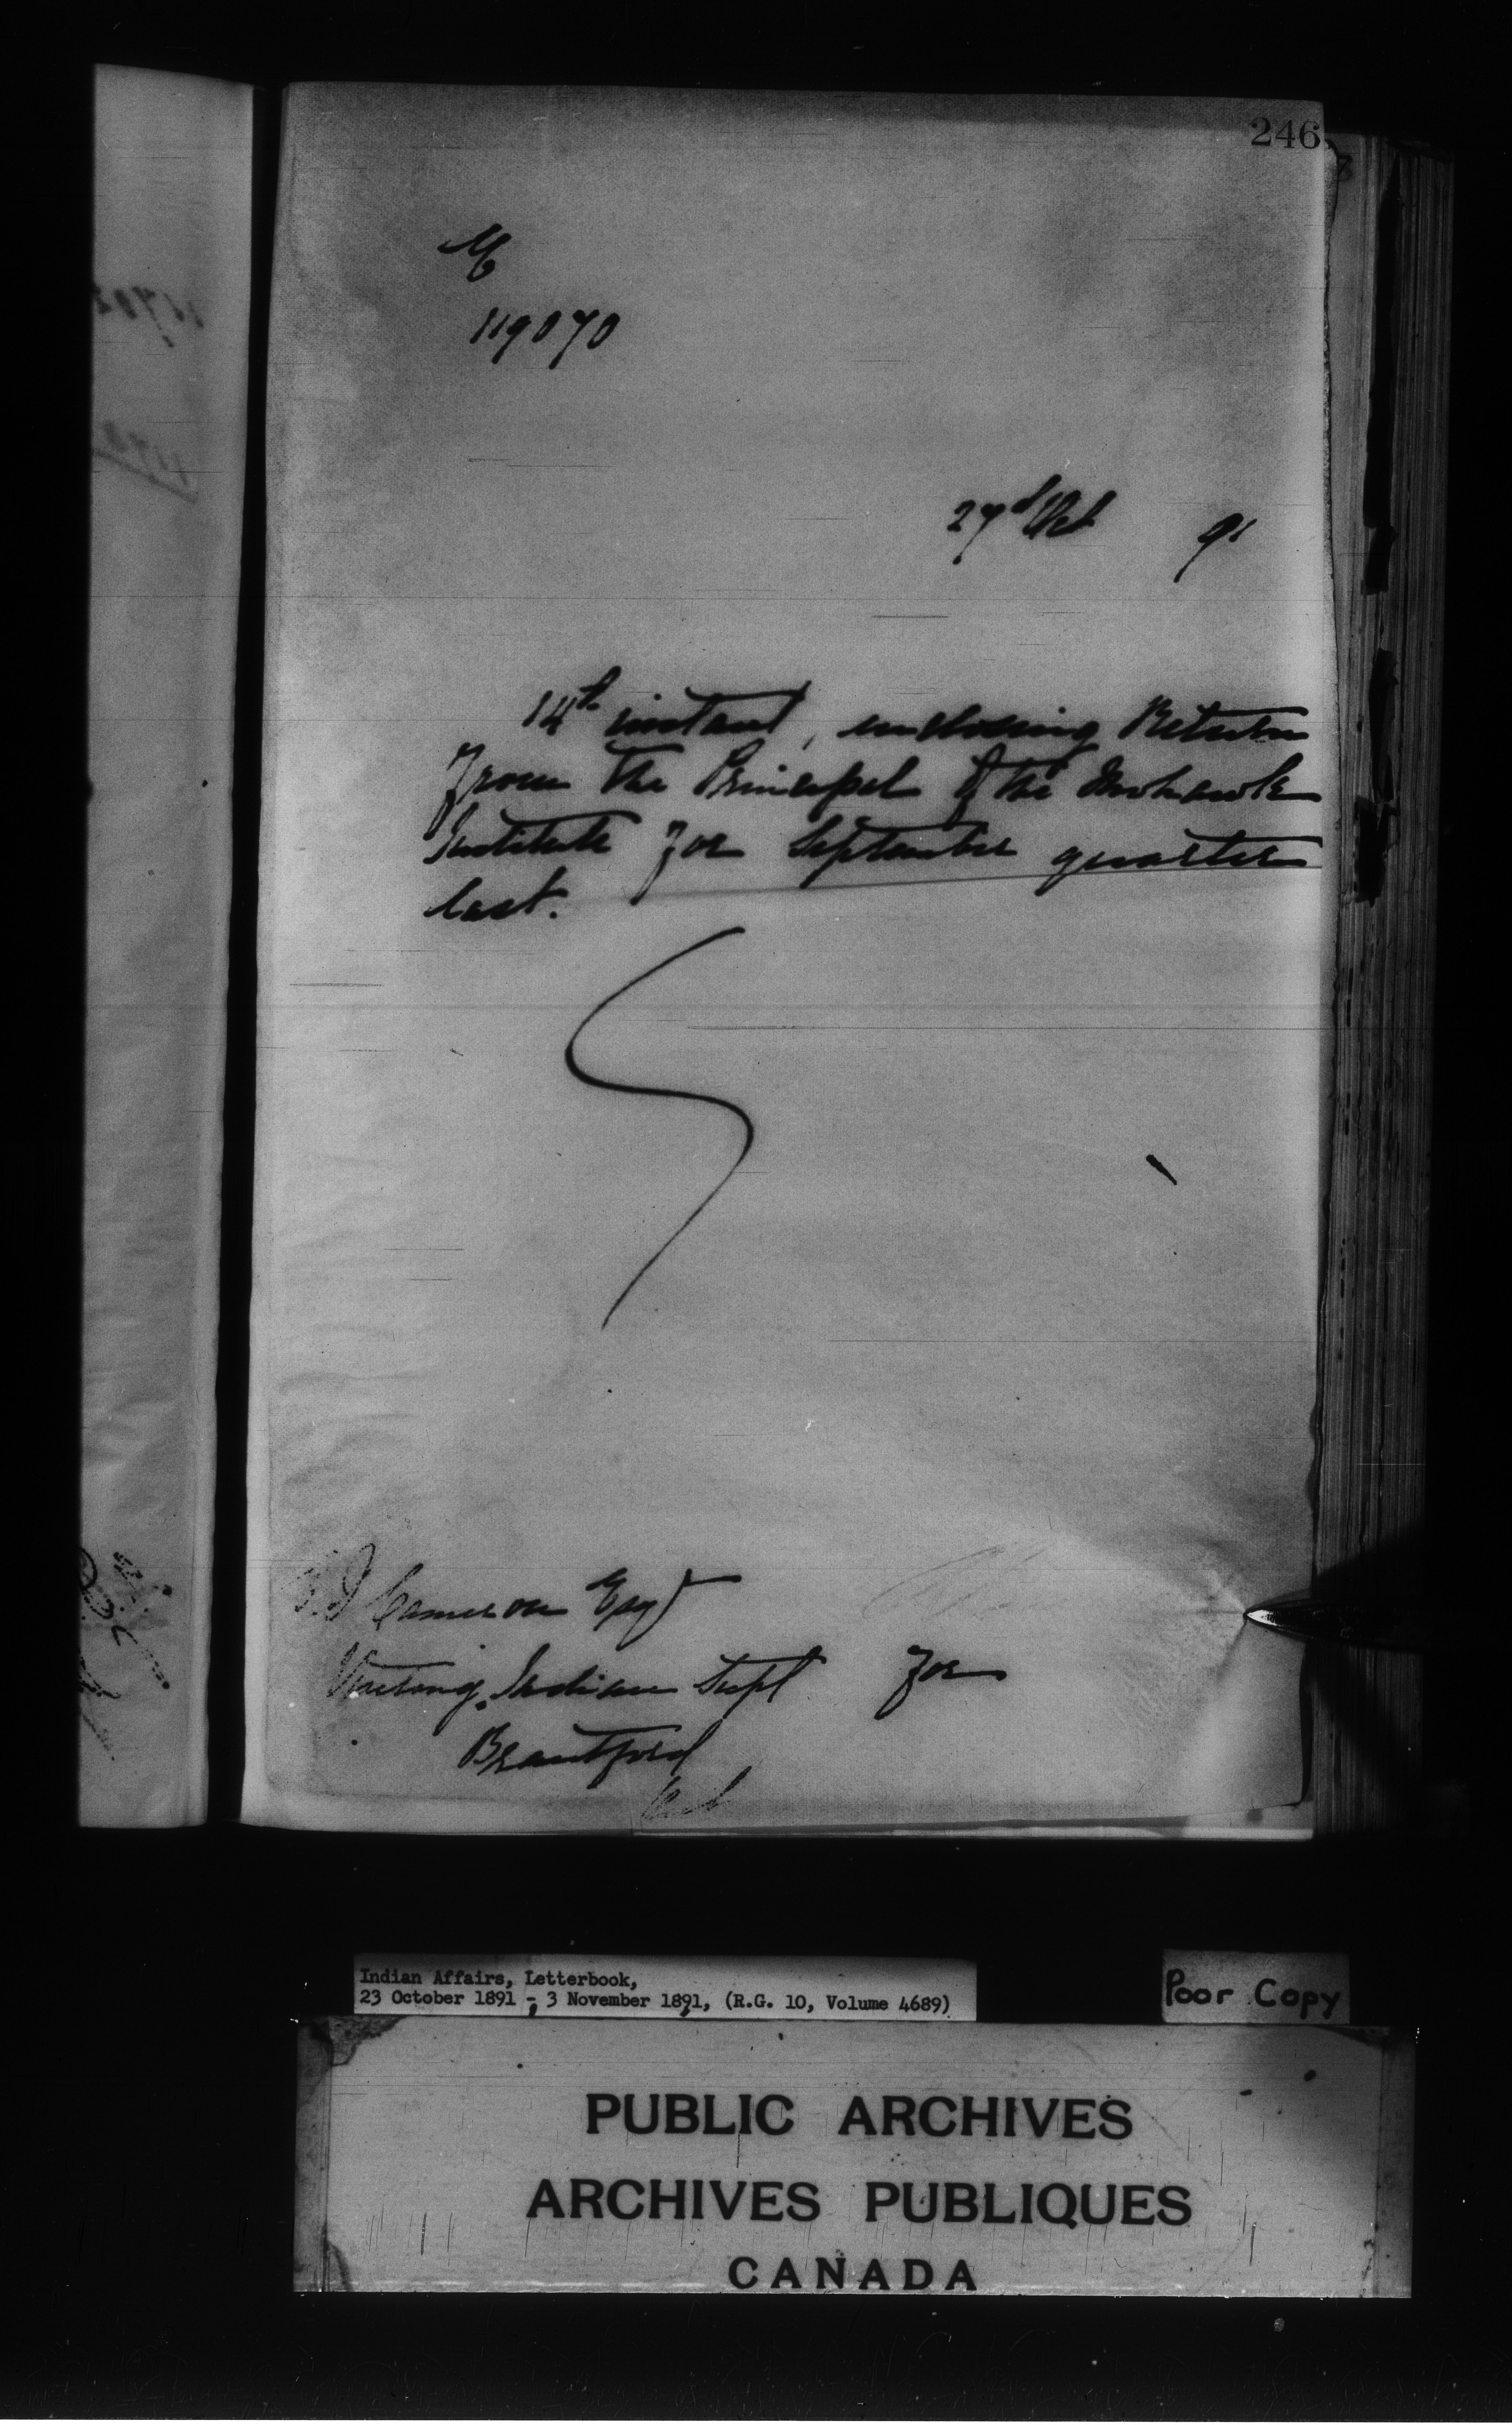 246
119070
27th Oct 91
14th instant, enclosing Return
from the Principal of the Mohawk
Institute for September quarter
last.
Cameron Esq
Visiting Indian Supt for
Brantford
Indian Affairs, Letterbook,
23 October 1891 - 3 November 1891, (R.G. 10, Volume 4689)
Poor Copy
PUBLIC ARCHIVES
ARCHIVES PUBLIQUES
CANADA